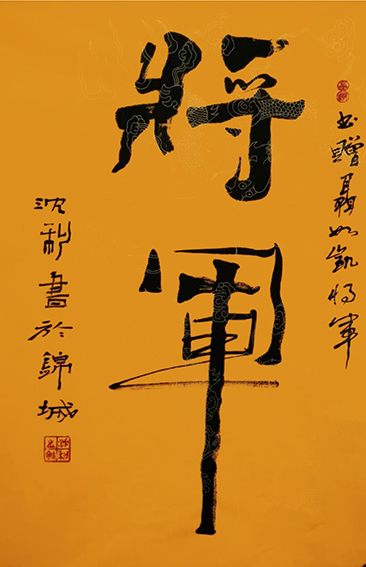 书贈聶如凱将军
將軍
沈利書於錦城